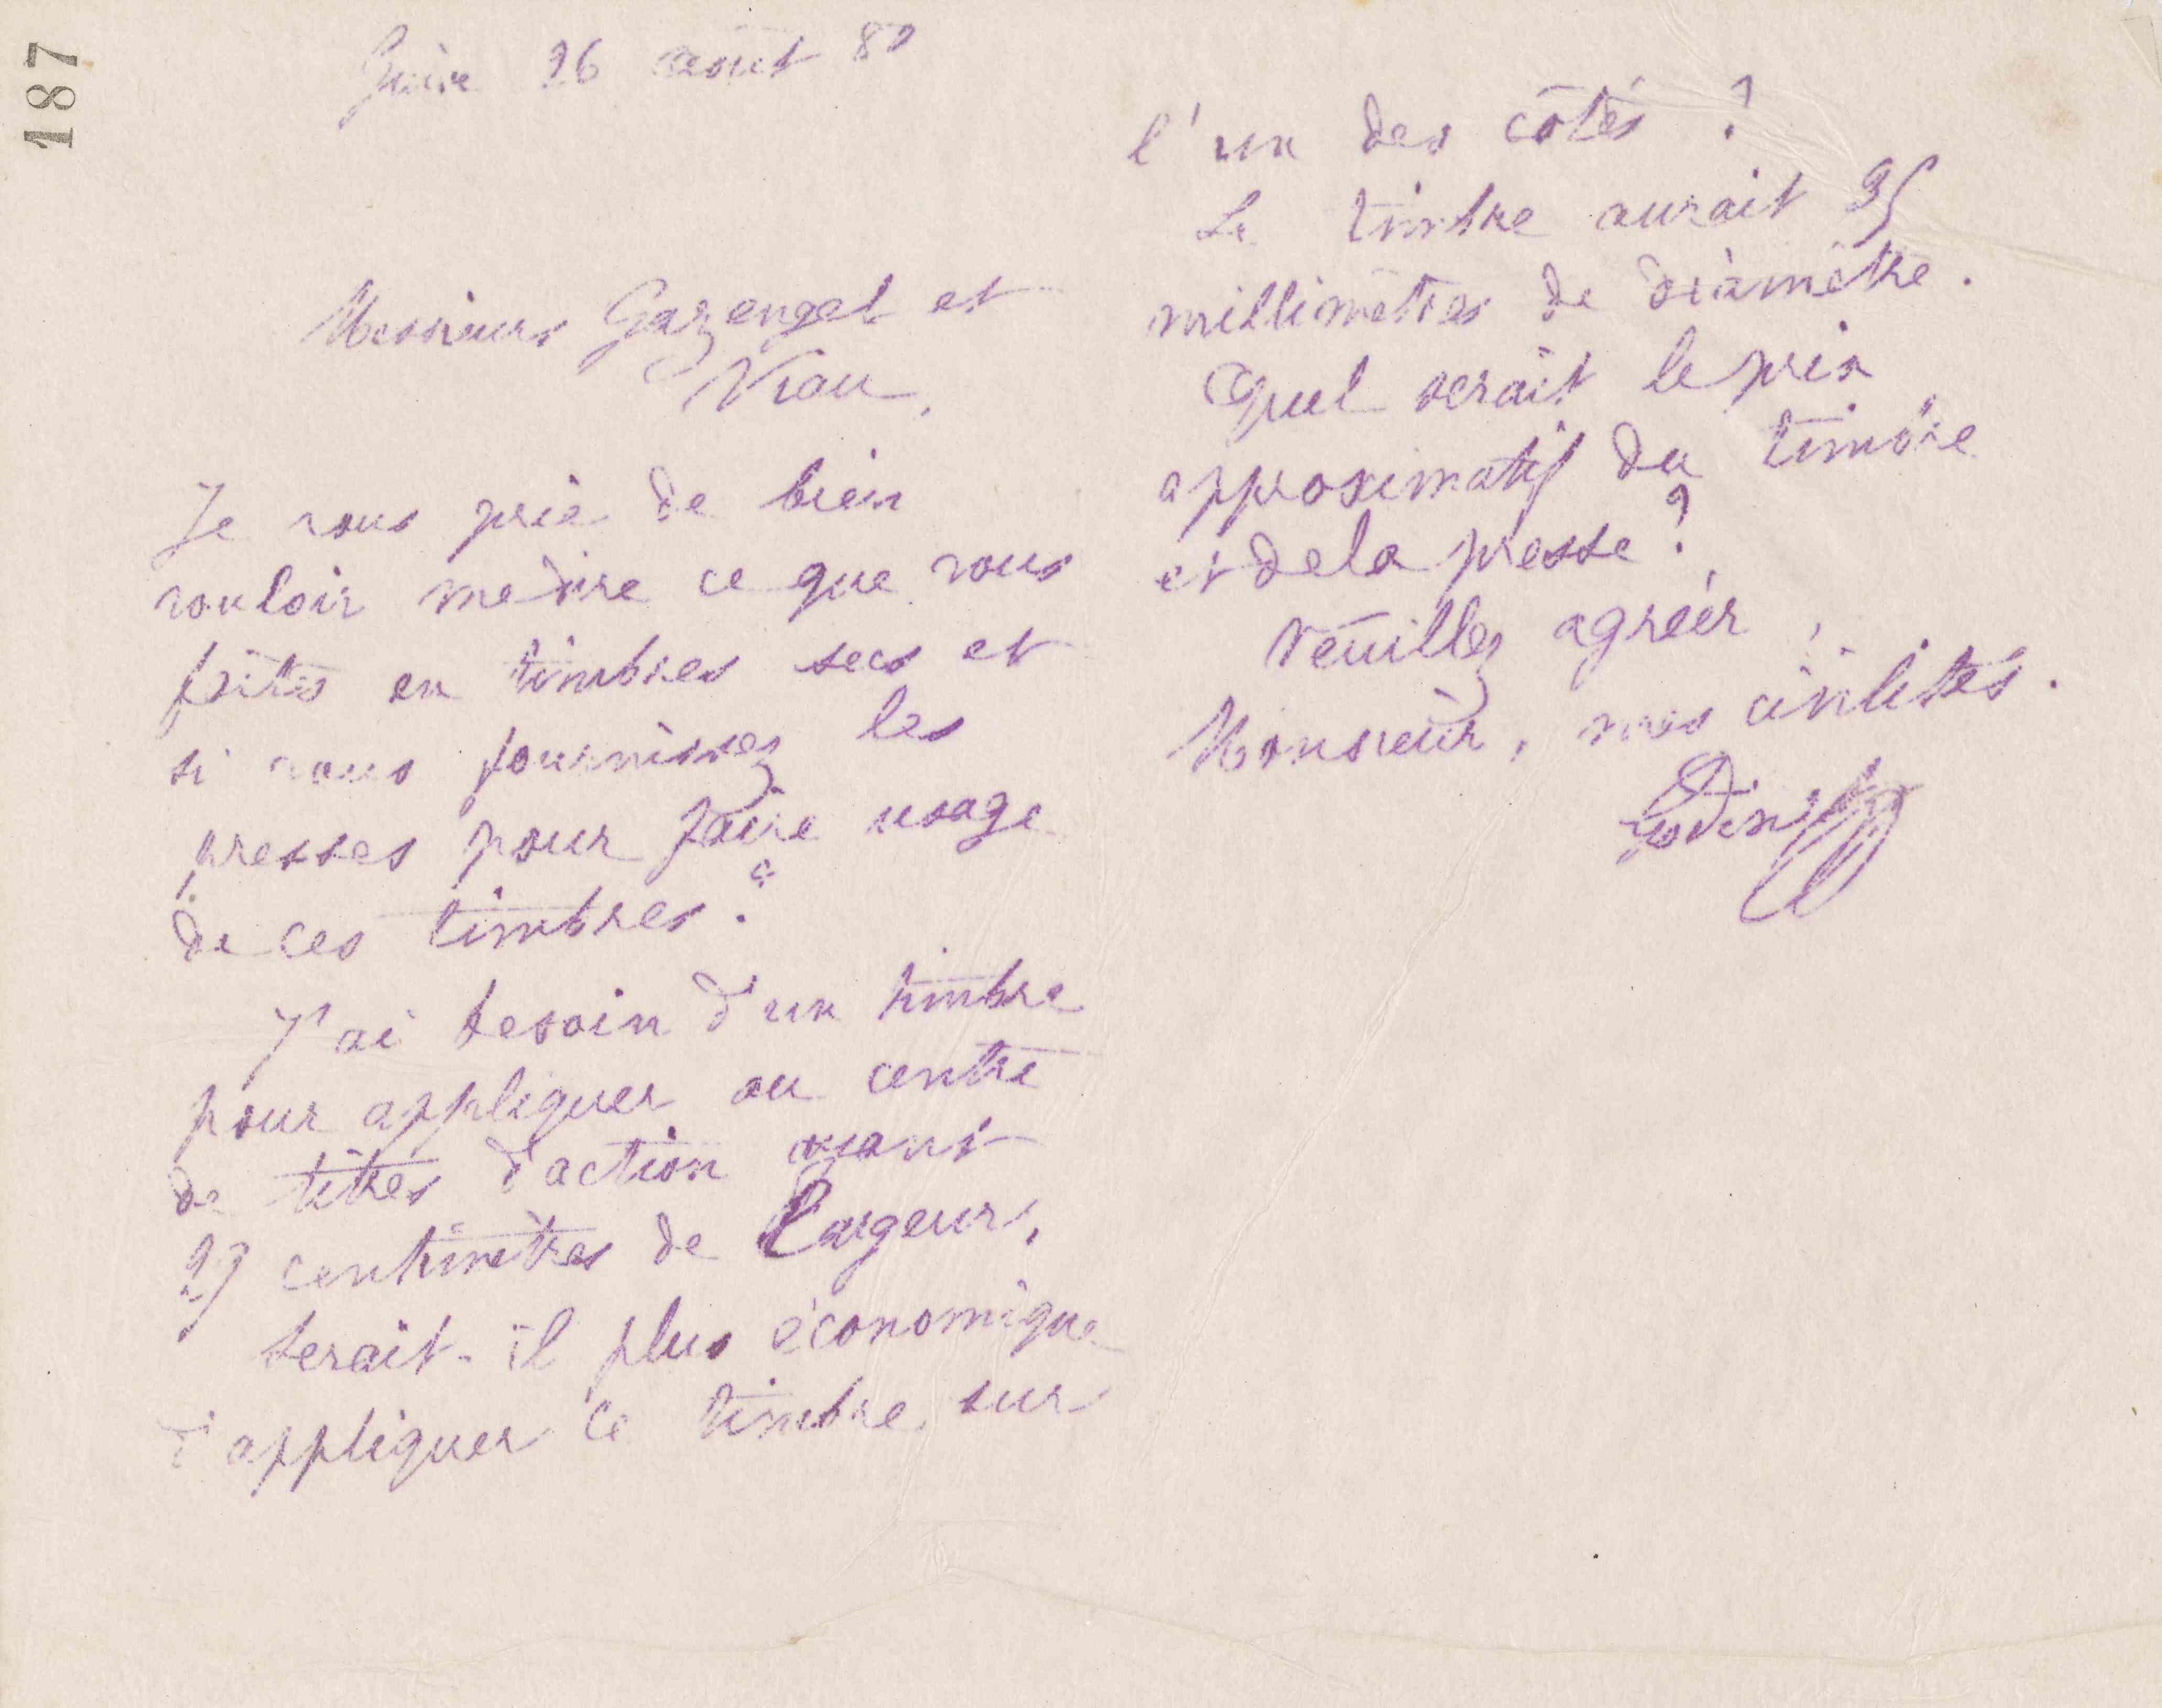 187
Guise 26 août 80
Messieurs Gazengel et
Viau,
Je vous prie de bien
vouloir me dire ce que vous
faites en timbres secs et
si vous fournissez les
presses pour faire usage
de ces timbres ?
J'ai besoin d'un timbre
pour appliquer au centre
de titres d'action ayant
27 centimètres de largeur,
serait-il plus économique
d'appliquer ce timbre sur
l'un des côtés ?
Le timbre aurait 35
millimètres de diamètre.
Quel serait le prix
approximatif du timbre
et de la presse ?
Veuillez agréer,
Monsieur, mes civilités.
Godin